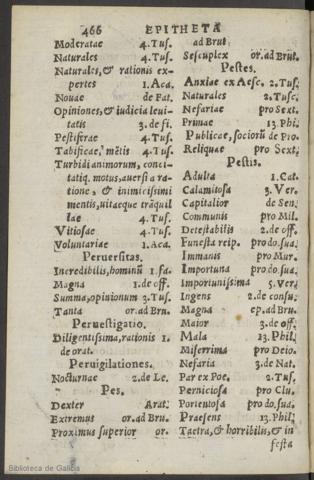 466 EPITHETA
Moderatae 4. Tus.
Naturales 4. Tus.
Naturales, & rationis ex-
pertes 1. Aca.
Nouae de Fat.
Opiniones, & iudicia leui-
tatis 3. de fi.
Pestiferae 4. Tus.
Tabificae, mẽtis 4. Tus.
Turbidi animorum, conci-
tatiq. motus, auersi a ra-
tione, & inimicissimi
mentis, uitaeque tráquil
lae 4. Tus.
Vitiosae 4. Tus.
Voluntariae 1. Aca.
Peruersitas.
Incredibilis, hominũ 1. fa.
Magna 1. de off.
Summa, opinionum 3. Tus.
Tanta or. ad Bru.
Peruestigatio.
Diligentissima, rationis 1.
de orat.
Peruigilationes.
Nocturnae 2. de Le.
Pes.
Dexter Arat.
Extremus or. ad Bru.
Proximus superior or.
ad Brut
Sescuplex or. ad Brut.
Pestes.
Anxiae ex Aesc. 2. Tus.
Naturales 2. Tusc.
Nefariae pro Sext.
Primae 13. Phil.
Publicae, sociorũ de Pro.
Reliquae pro Sext.
Pestis.
Adulta 1. Cat.
Calamitosa 3. Ver.
Capitalior de Sen.
Communis pro Mil.
Detestabilis 2. de off.
Funesta reip. pro do. sua.
Immanis pro Mur.
Importuna pro do. sua.
Importunissima 5. Ver.
Ingens 2. de consu.
Magna ep. ad Bru.
Maior 3. de off.
Mala 13. Phil.
Miserrima pro Deio.
Nefaria 3. de Nat.
Par ex Poe. 2. Tus.
Perniciosa pro Clu.
Portentosa pro do. sua.
Praesens 13. Phil.
Taetra, & horribilis, & in
festa
Biblioteca de Galicia